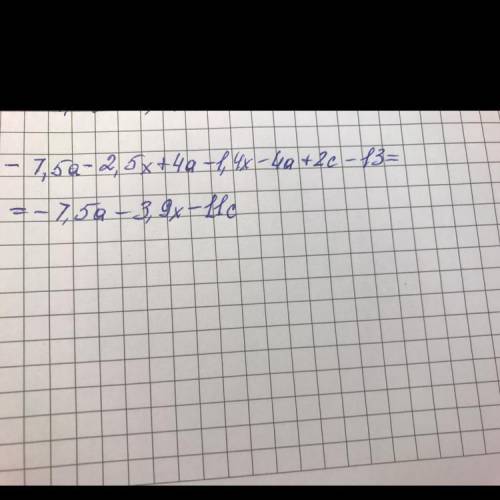 - 7,5a - 2,5x + 4a - 1,4x - 4a + 2c - 13 =
= - 7,5a - 3,9x - 11c